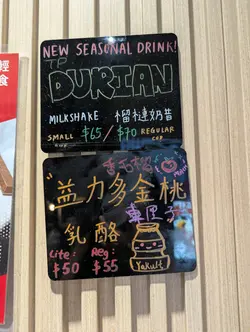 輕
食
NEW SEASONAL DRINK!
TP
DURIAN
MILKSHAKE 榴槤奶昔
SMALL $65/$70 REGULAR
CUP CUP
益力多金桃
乳酪
Lite: Reg:
$50 $55
Yakult